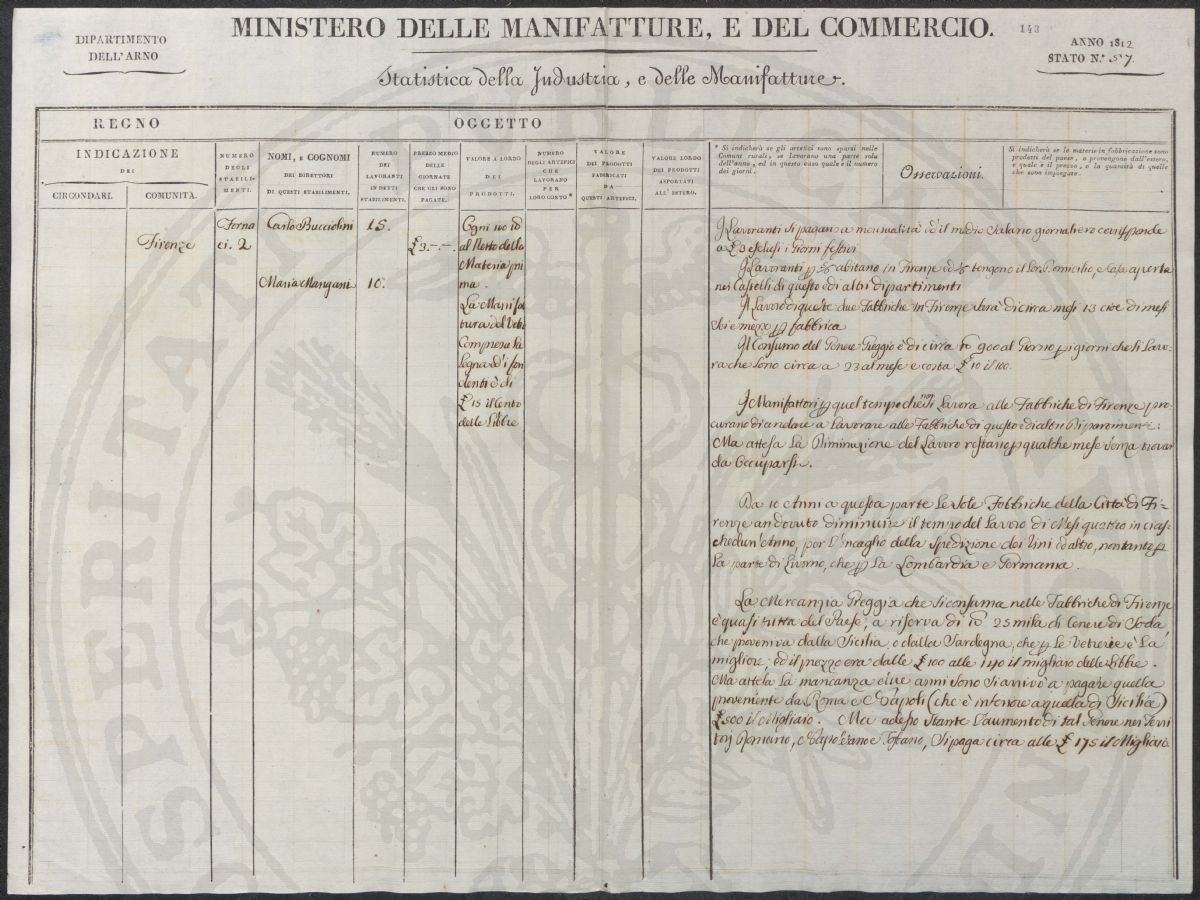 MINISTERO DELLE MANIFATTURE, E DEL COMMERCIO.
143
DIPARTIMENTO
DELL'ARNO
ANNO 1812
STATO N.º 57.
Statistica della Industria, e delle Manifatture.
REGNO
OGGETTO
INDICAZIONE
DEI
CIRCONDARI.
COMUNITÀ.
NUMERO
DEGLI
STABILI-
MENTI.
NOMI, E COGNOMI
DEI DIRETTORI
DI QUESTI STABILIMENTI.
NUMERO
DEI
LAVORANTI
IN DETTI
STABILIMENTI.
PREZZO MEDIO
DELLE
GIORNATE
CHE GLI SONO
PAGATE.
VALORE A LORDO
DEI
PRODOTTI.
NUMERO
DEGLI ARTEFICI
CHE
LAVORANO
PER
LORO CONTO *
VALORE
DEI PRODOTTI
FABBRICATI
DA
QUESTI ARTEFICI.
VALORE LORDO
DEI PRODOTTI
ASPORTATI
ALL'ESTERO.
* Si indicherà se gli artefici sono sparsi nelle
Comuni rurali, se lavorano una parte sola
dell'anno, ed in questo caso quale è il numero
dei giorni.
Osservazioni.
Si indicherà se le materie in fabbricazione sono
prodotti del paese, o provengono dall'estero,
e quale è il prezzo, e la quantità di quelle
che sono impiegate.
Firenze
Forna
ci. 2
Carlo Bucciolini
15.
£ 3.-.-.
Maria Mangani
10.
Ogni 100 id
al Netto della
Materia pri
ma.
La Manifa
tura del Vetro
Compresa la
Legna ed i fon
denti è di
£ 15 il Cento
delle Libbre
I Lavoranti si pagano a mensualità ed il medio Salario giornaliero corrisponde
a £ 3 esclusi i Giorni festivi
I Lavoranti p abitano in Firenze ed tengono il Lor Domicilio, e Casa aperta
nei Castelli di questo ed altri dipartimenti
Il Lavoro di queste due Fabbriche in Firenze sarà di circa mesi 13 cioè di mesi
sei e mezzo p fabbrica
Il Consumo del Genere Greggio è di circa 900 al Giorno p i giorni che si Lavo-
ra che sono circa a 23 al mese e costa £ 10 il 100.
I Manifattori p quel tempo che non si Lavora alle Fabbriche di Firenze pro-
curano di andare a Lavorare alle Fabbriche di questo ed altri Dipartimenti:
Ma attesa la Diminuzione del Lavoro restano p qualche mese senza trovar
da Occuparsi.
Da 10 Anni a questa parte le sole Fabbriche della Città di Fi-
renze an dovuto diminuire il tempo del Lavoro di Mesi quattro in cias-
chedun'Anno, per l'incaglio della Spedizione dei Vini ed altro, non tanto p
la parte di Livorno, che p La Lombardia e Germania.
La Mercanzia Greggia che si consuma nelle Fabbriche di Firenze
è quasi tutta del Paese, a riserva di 25 mila di Cenere di Soda,
che proveniva dalla Sicilia, o dalla Sardegna, che p le Vetrerie è La
migliore; ed il prezzo era dalle £ 100 alle 140 il migliaio delle Libbre.
Ma attesa La mancanza due anni sono si arrivò a pagare quella
proveniente da Roma e Napoli (che è inferiore a quella di Sicilia)
£ 500 il Migliaio. Ma adesso stante L'aumento di tal Genere nei Terri
torj Romano, Napoletano e Toscano, si paga circa alle £ 175 il Migliaio.